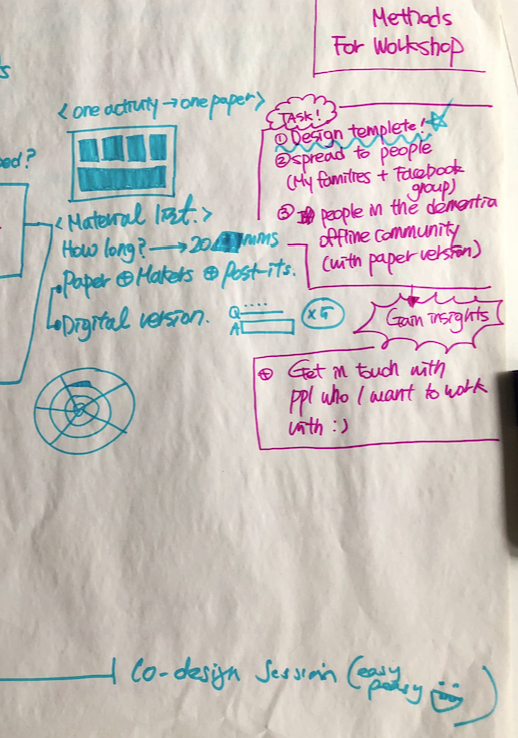 Methods
For Workshop
s
<one activity → one paper>
ed?
TASK!
① Design templete!
② spread to people
(My families + Facebook
group)
③ people in the dementia
offline community
(with paper version)
<Material list.>
How long? → 20 mins
Paper ⊕ Makers ⊕ Post-its.
Digital version.
Q
A
×5
Gain insights
⊕ Get in touch with
ppl who I want to work
with :)
Co-design Session (easy
peasy